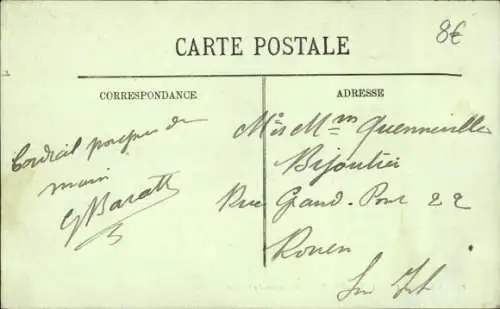 8€
CARTE POSTALE
CORRESPONDANCE
Cordial poignée de
main
G Baratt
ADRESSE
Mr et Mme Quenneville
Bijoutier
Rue Grand-Pont 22
Rouen
Sr Inf